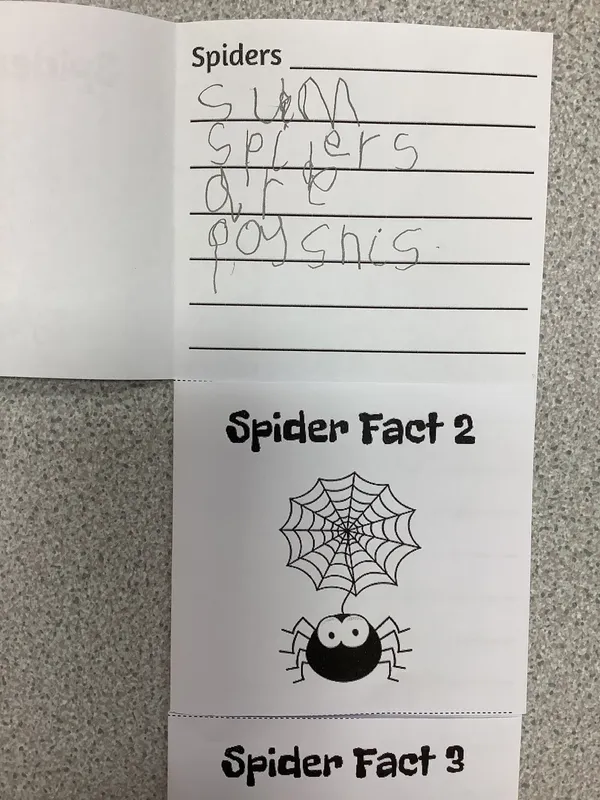 Spiders
sum
spiders
are
poysnis.
Spider Fact 2
Spider Fact 3